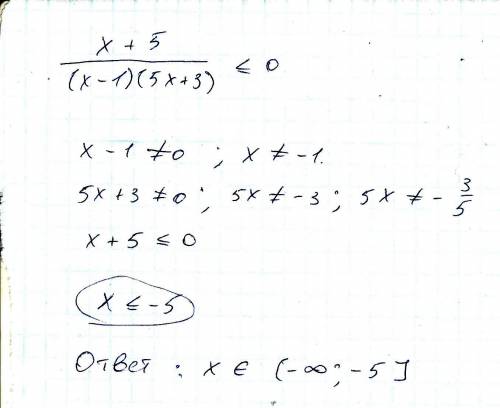 x + 5 / (x-1)(5x+3) ≤ 0
x - 1 ≠ 0 ; x ≠ -1.
5x+3 ≠ 0 ; 5x ≠ -3 ; 5x ≠ - 3/5
x + 5 ≤ 0
x ≤ -5
Ответ : x ∈ (-∞; -5]